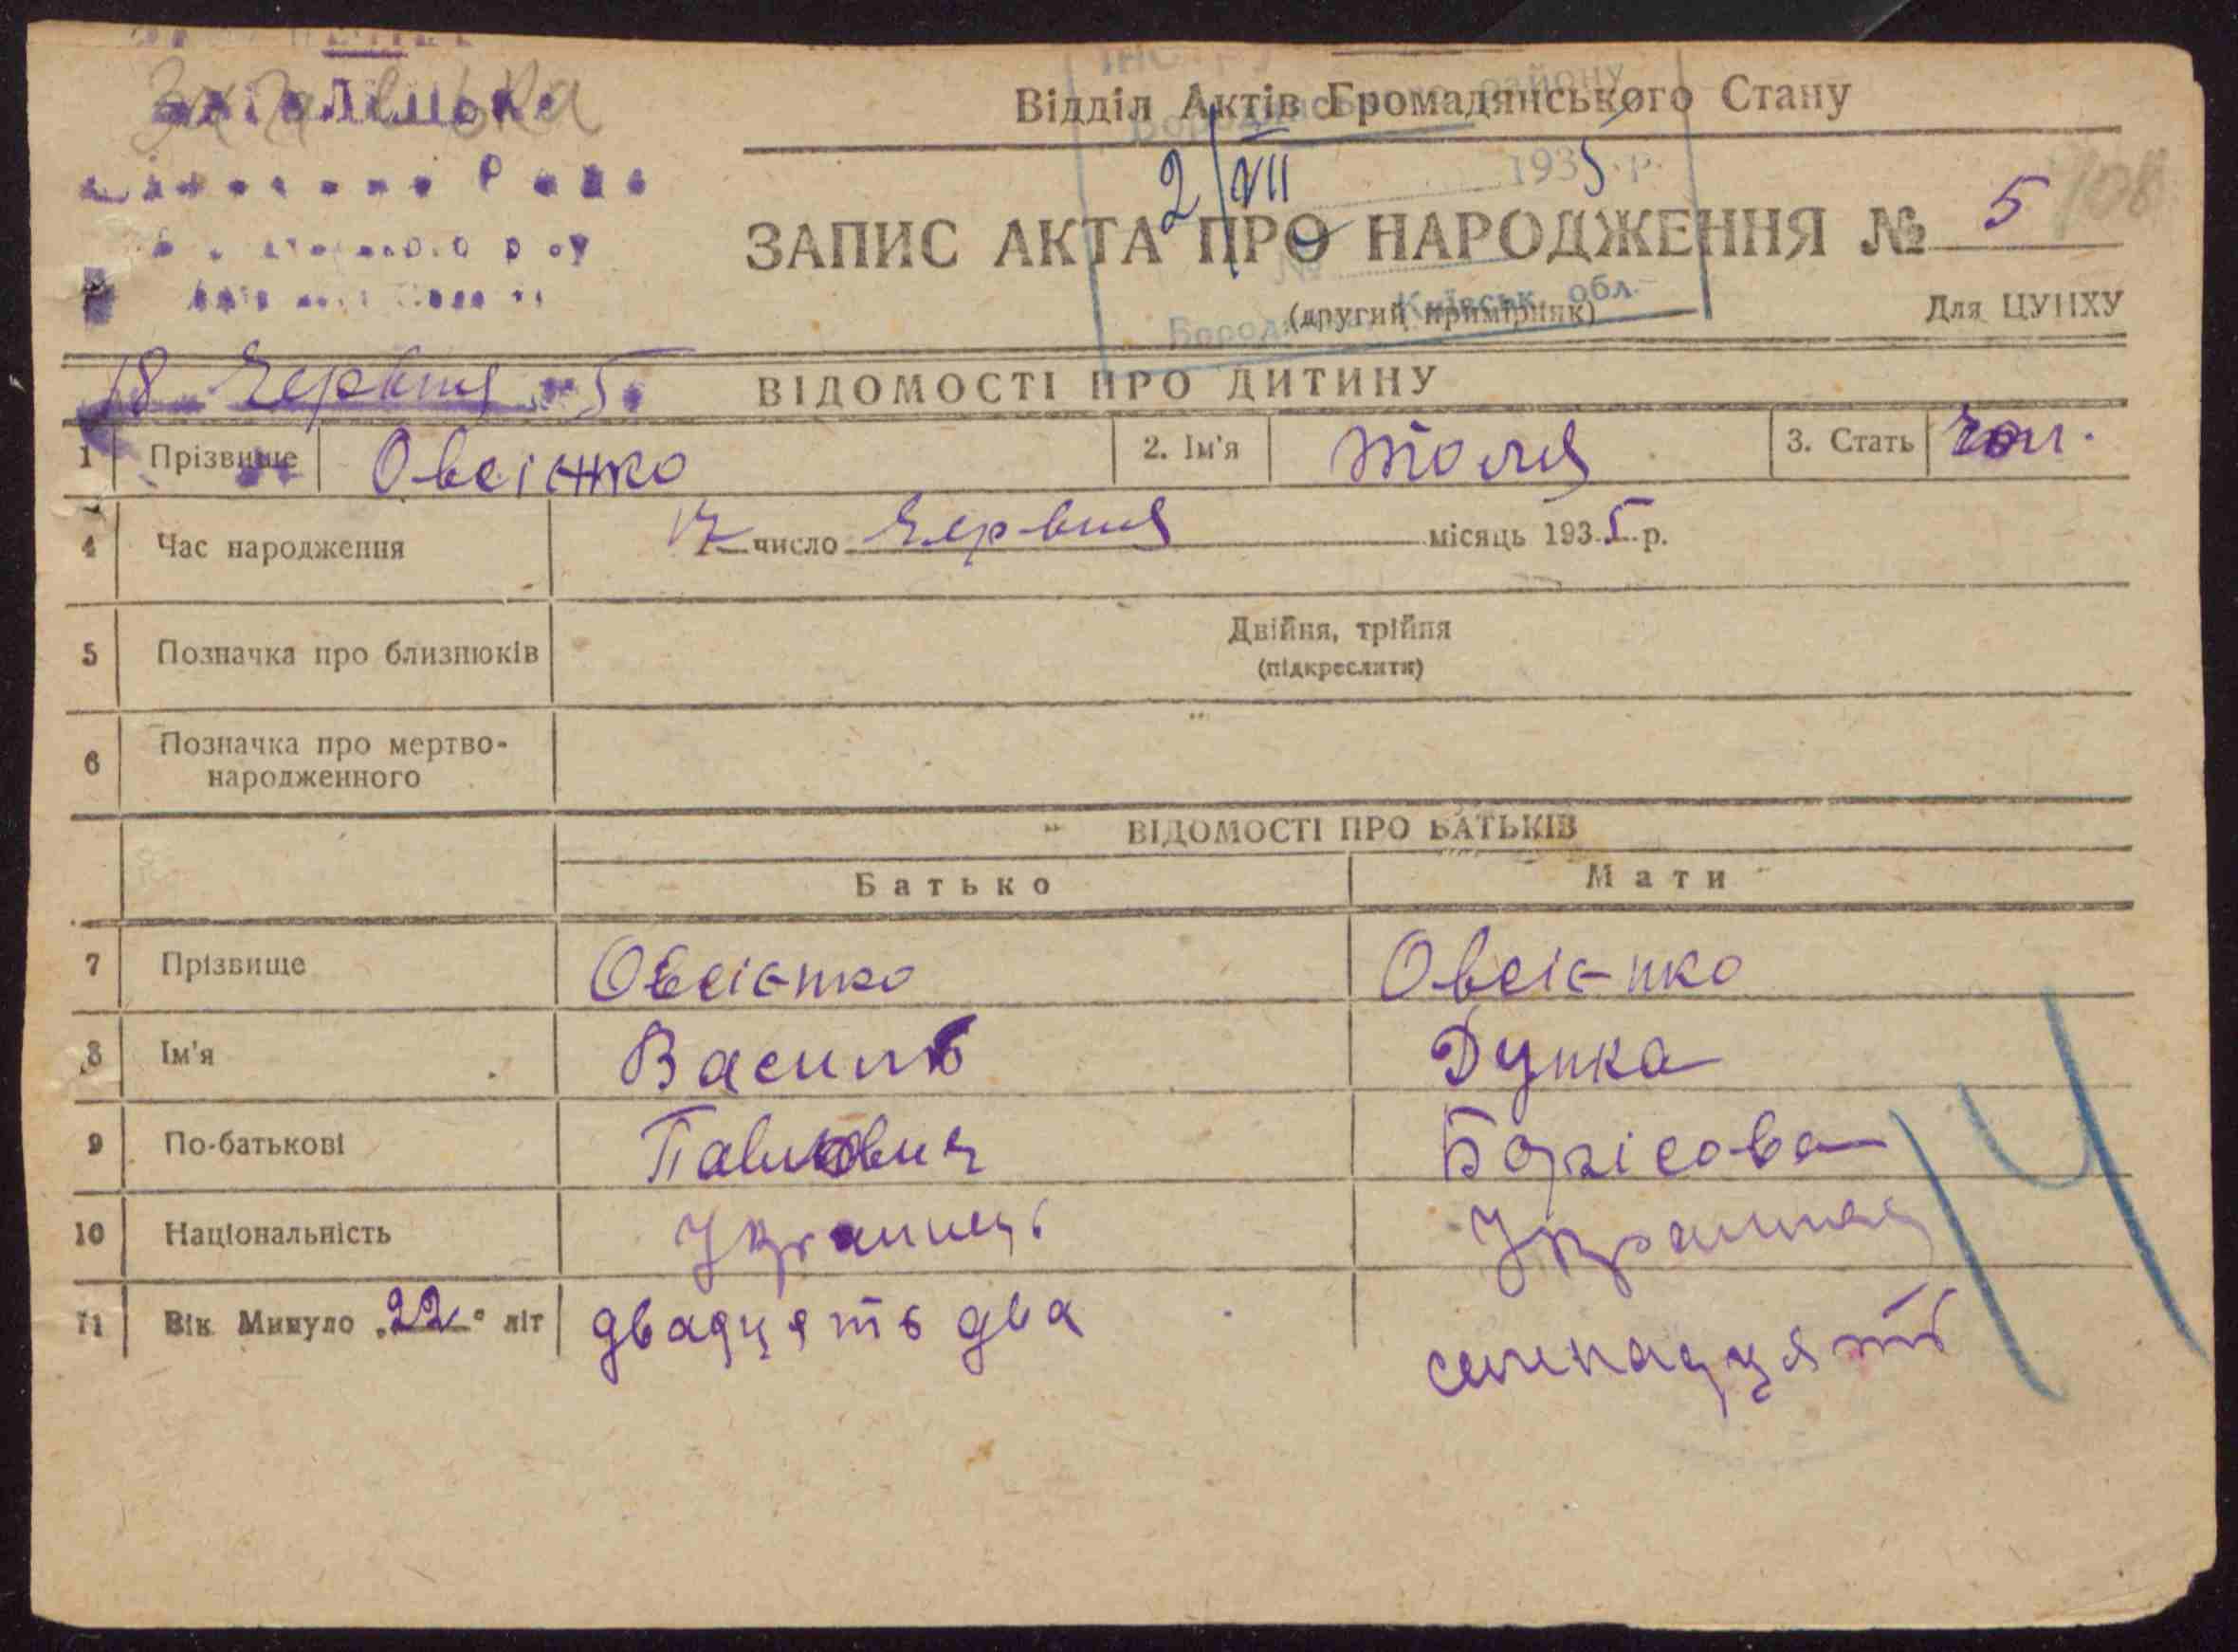 Відділ Актів Громадянського Стану
району
2/VII 1935 р.
ЗАПИС АКТА ПРО НАРОДЖЕННЯ № 5
108
(другий примірник)
Київськ. обл.
Для ЦУНХУ
18 Червня 5
ВІДОМОСТІ ПРО ДИТИНУ
1 Прізвище Овсієнко 2. Ім'я Толя 3. Стать чол.
4 Час народження 17 число Червня місяць 1935 р.
5 Позначка про близнюків Двійня, трійня
(підкреслити)
6 Позначка про мертво-
народженного
ВІДОМОСТІ ПРО БАТЬКІВ
Батько Мати
7 Прізвище Овсієнко Овсієнко
8 Ім'я Василь Дунка
9 По-батькові Павлович Борісова
10 Національність Українець Українка
11 Вік Минуло „22“ літ двадцять два семнадцять